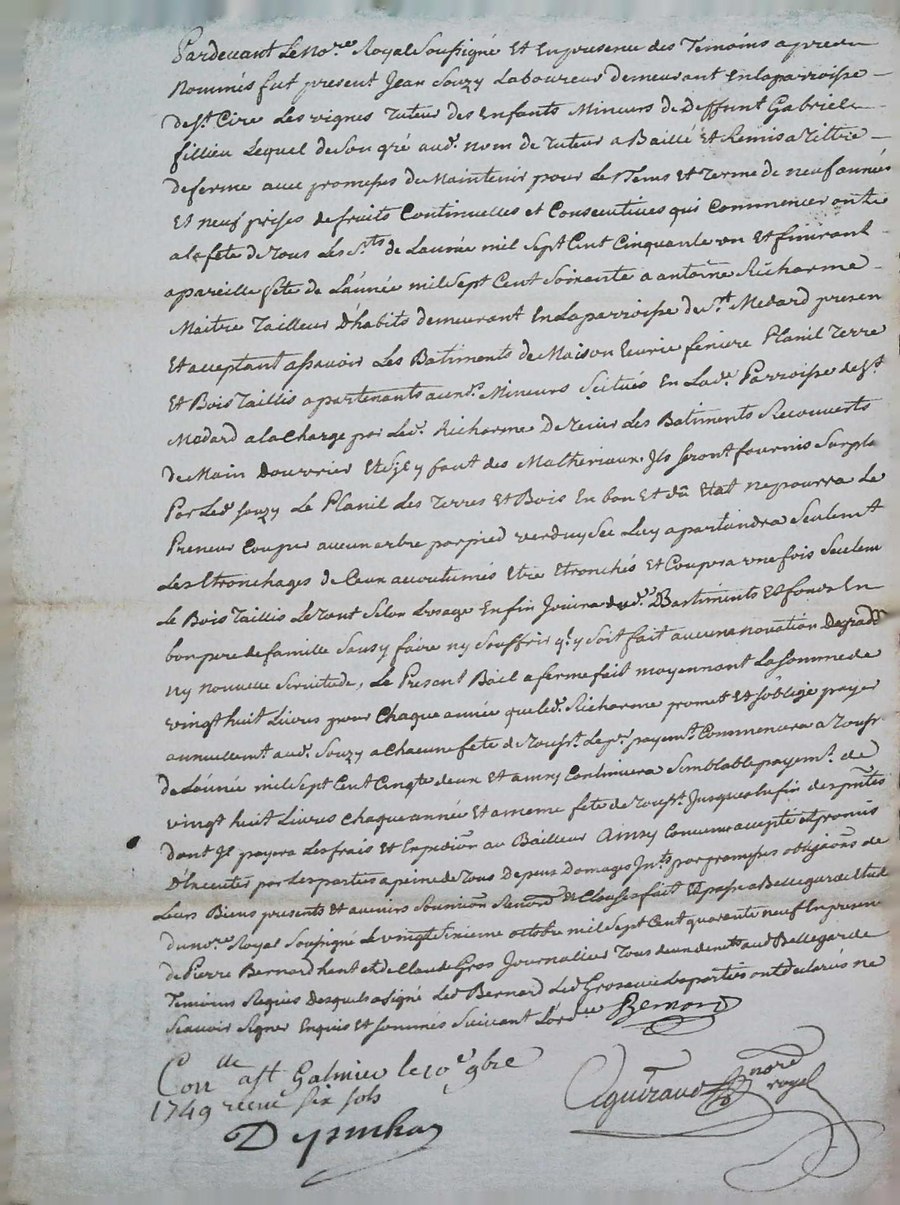 Pardevant Le No.re Royal Soussigné Et En presence des Temoins apres
Nommés fut present Jean Souzy Laboureur demeurant En la parroisse
de St Cire Les vignes Tuteur des Enfants Mineurs de deffunt Gabriel
fillieu Lequel de Son gré aud. nom de Tuteur a Baillé Et Remis a Tiltre
de ferme avec promesses de Maintenir pour Les Tems Et Terme de neuf années
Et neuf prises de fruits Continuelles et Consecutives qui Commenceront
a la fete de Tous Les Sts de L'année mil Sept Cent Cinquante un Et finiront
a pareille fete de L'année mil Sept Cent Soixante a antoine Richarme
Maitre Tailleur D'habits demeurant En La parroisse de St Medard presen
Et acceptant assavoir Les Batiments de Maison Ecurie feniere Planil Terre
Et Bois Taillis apartenants auxd. Mineurs Scitués En Lad.e Parroisse de St
Medard a la Charge par Led. Richarme De tenir Les Batiments Recouverts
de Main Douvrier Et S'il y faut des Matheriaux Ils Seront fournis Sur pla
Par Led Souzy Le Planil Les Terres Et Bois En bon Et dû Etat ne pourra Le
Preneur Couper aucun arbre par pied verd ny Sec Luy apartiendra Seulemt
Les Etronchages de Ceux accoutumés Etre Etronchés Et Coupera une fois Seulem
Le Bois Taillis Le tout Selon L'usage Enfin Jouira desd. Bastiments Et fonds En
bon pere de famille Sans y faire ny Souffrir q'l y Soit fait aucune novation Degrad
ny nouvelle Servitude, Le Present Bail a ferme fait moyennant La Somme de
vingt huit Livres pour Chaque année que Led. Richarme promet Et S'oblige payer
annuellemt aud. Souzy a Chacune fete de Tousst. Le pr. payemt Commencera a Touss
de L'année mil Sept Cent Cinqte deux Et ainsy Continuera Semblable payemt. de
vingt huit Livres Chaque année Et a meme fete de Tousst. Jusques a la fin des pntes
dont Il payera Les frais Et Expedion au Bailleur Ainsy Convenu accepté Et promis
D'Executer par Les parties a peine de Tous Depens Domages Jnts par promesses obligaons de
Leurs Biens presents Et avenirs Soumion Renond Et Clauses fait Et passé a Bellegarde Etude
du no.re Royal Soussigné Le vingt Sixieme octobre mil Sept Cent quarante neuf En presen
de Pierre Bernard et de Claude Gros Journalier Tous deux demts aud Bellegarde
Temoins Requis Desquels a Signé Led Bernard Led Gros avec Les parties ont declarés ne
Scavoir Signer Enquis Et Sommés Suivant L'ord.ce Bernard
Con.lle a St Galmier le 10e 9bre
1749 receu six sols
Aguiraud nore royal